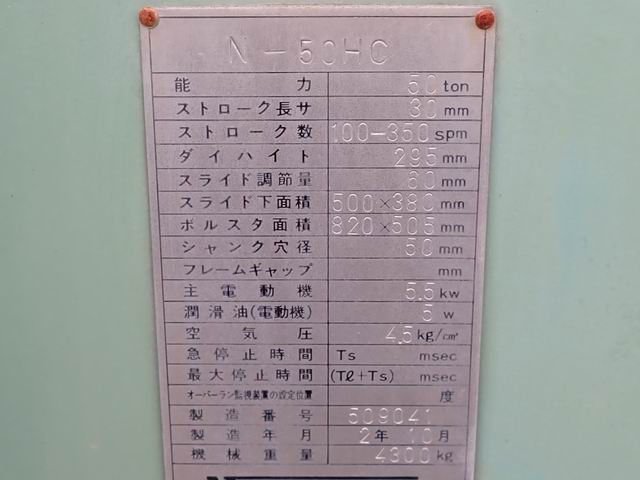 N-50HC
能力 50 ton
ストローク長サ 30 mm
ストローク数 100-350 spm
ダイハイト 295 mm
スライド調節量 60 mm
スライド下面積 500×380 mm
ボルスタ面積 820×505 mm
シャンク穴径 50 mm
フレームギャップ mm
主電動機 5.5 kw
潤滑油(電動機) 5 w
空気圧 4.5 kg/cm²
急停止時間 Ts msec
最大停止時間 (Tℓ+Ts) msec
オーバーラン監視装置の設定位置 度
製造番号 509041
製造年月 2年 10月
機械重量 4300 kg